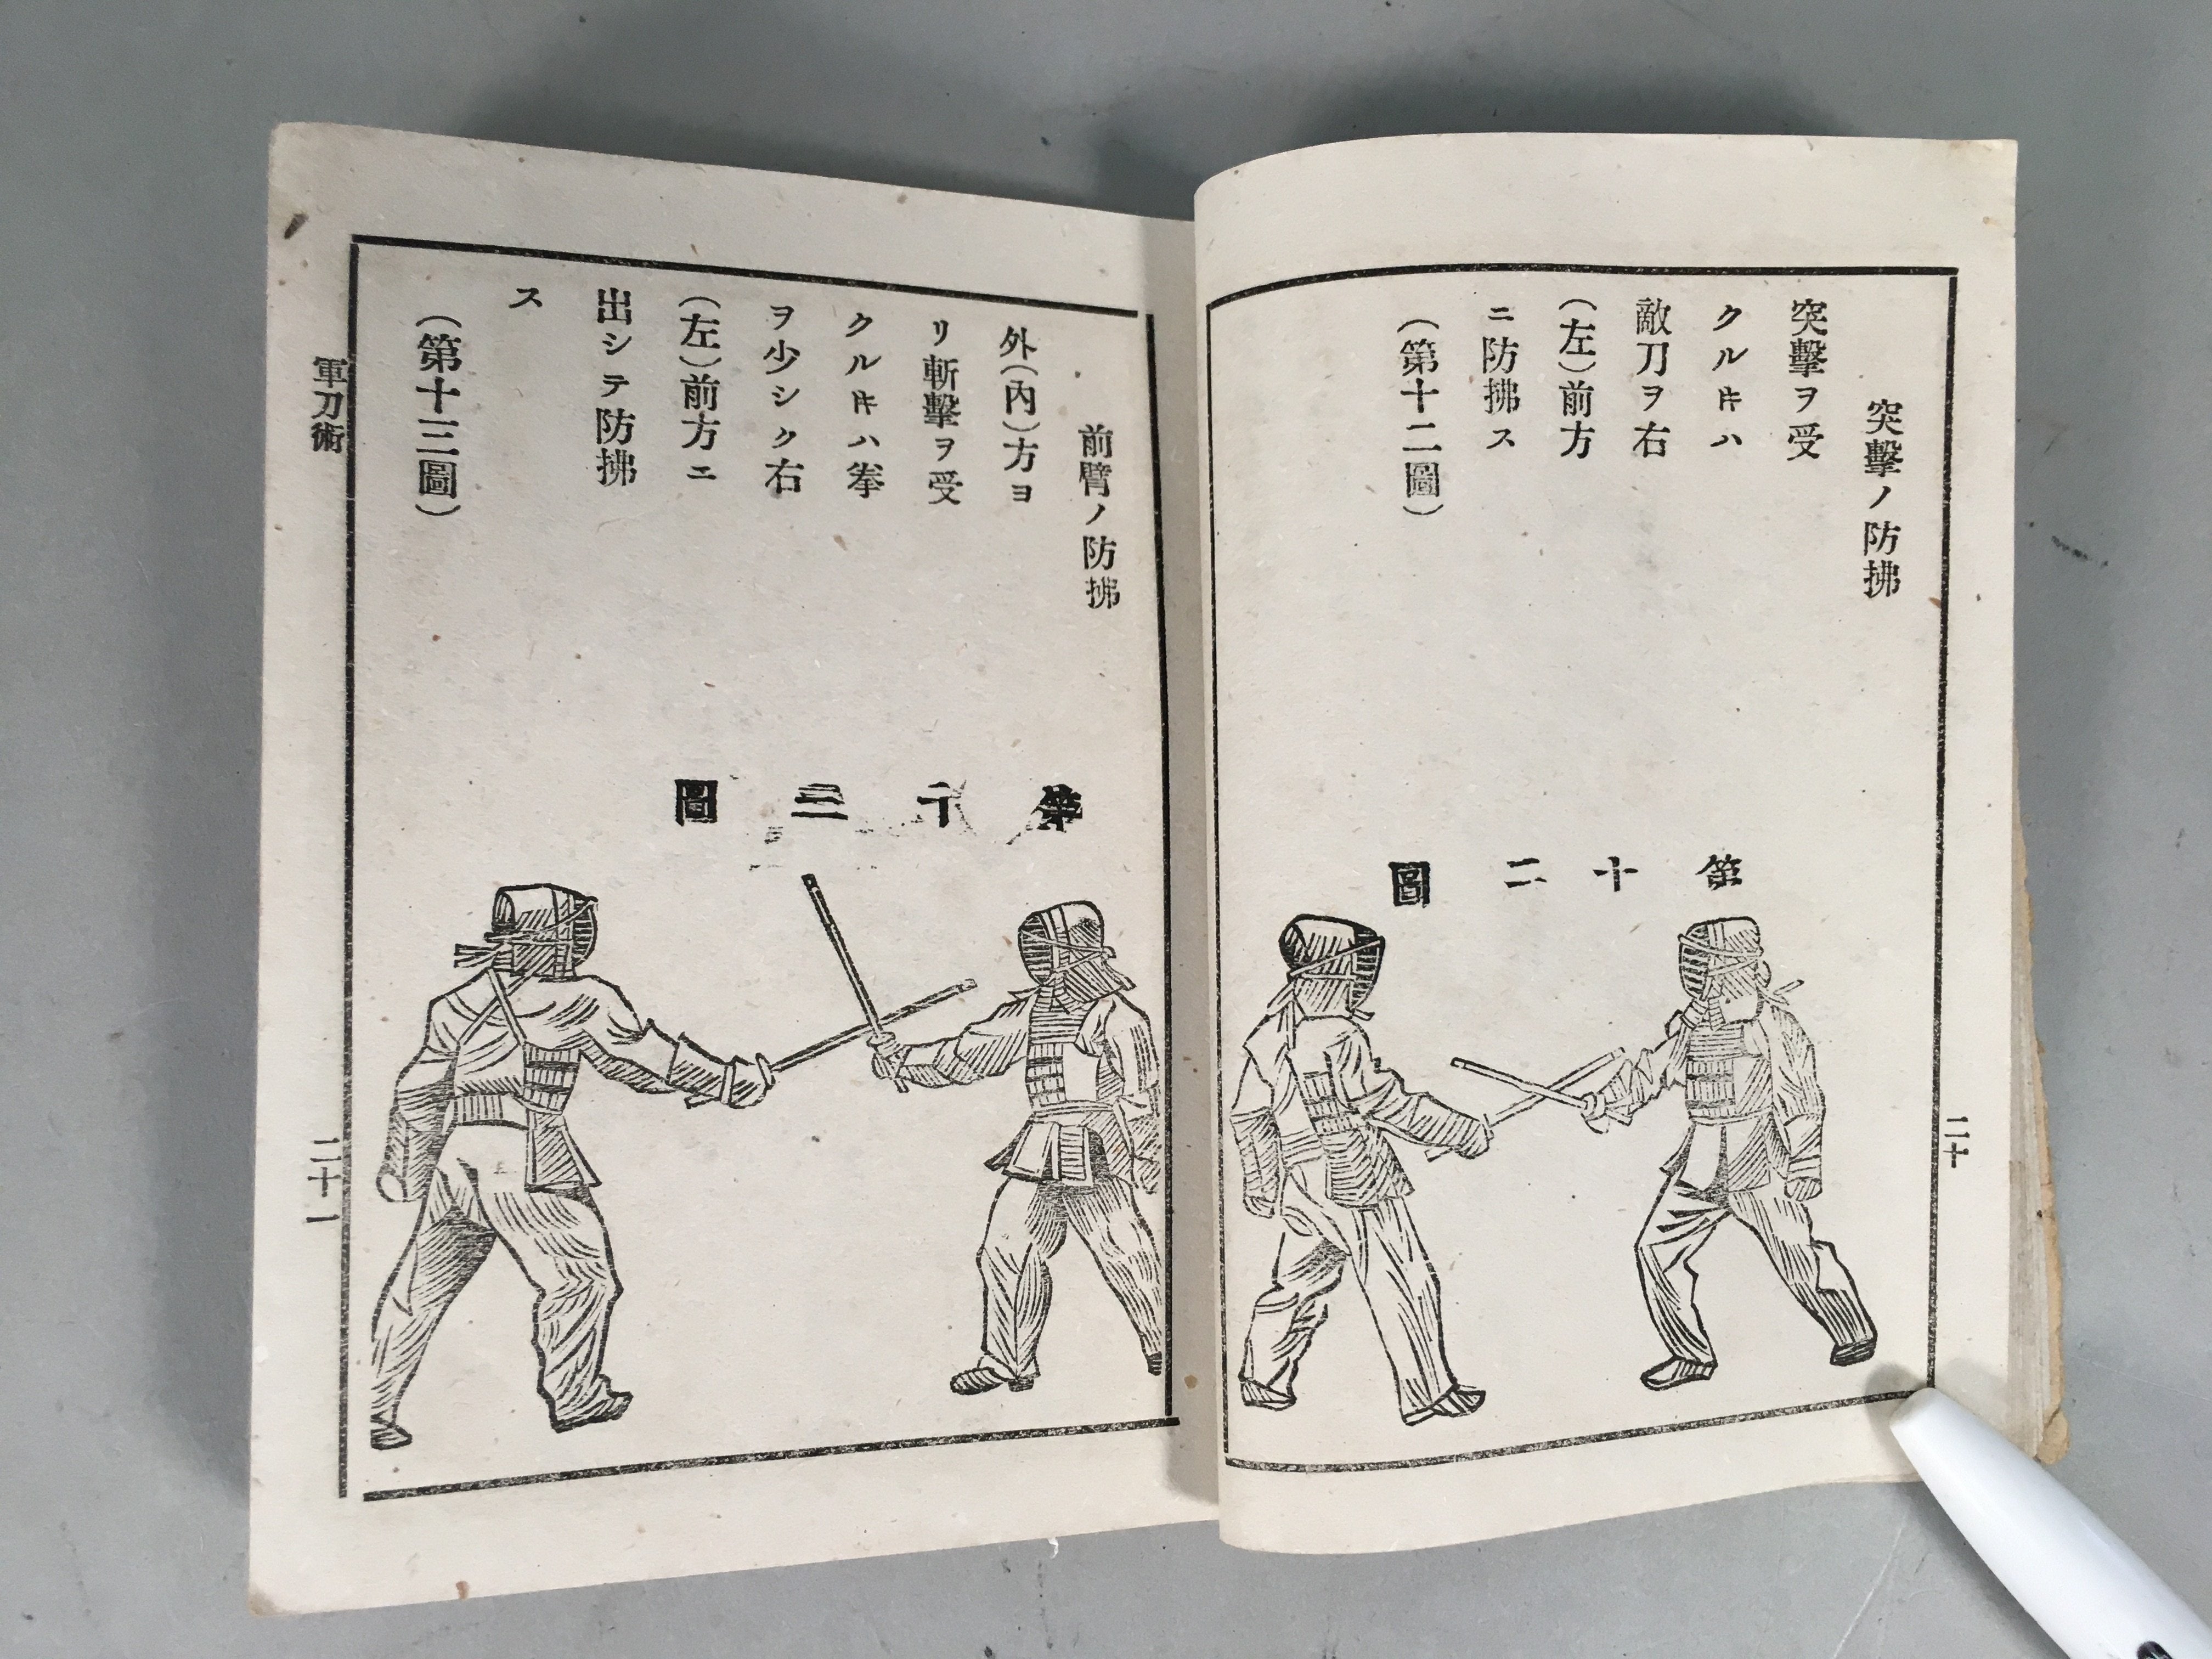 突擊ノ防拂
突擊ヲ受
クル𪜈ハ
敵刀ヲ右
(左)前方
ニ防拂ス
(第十二圖)
第十二圖
二十
前臂ノ防拂
外(內)方ヨ
リ斬擊ヲ受
クル𪜈ハ拳
ヲ少シク右
(左)前方ニ
出シテ防拂
ス
(第十三圖)
第十三圖
軍刀術
二十一